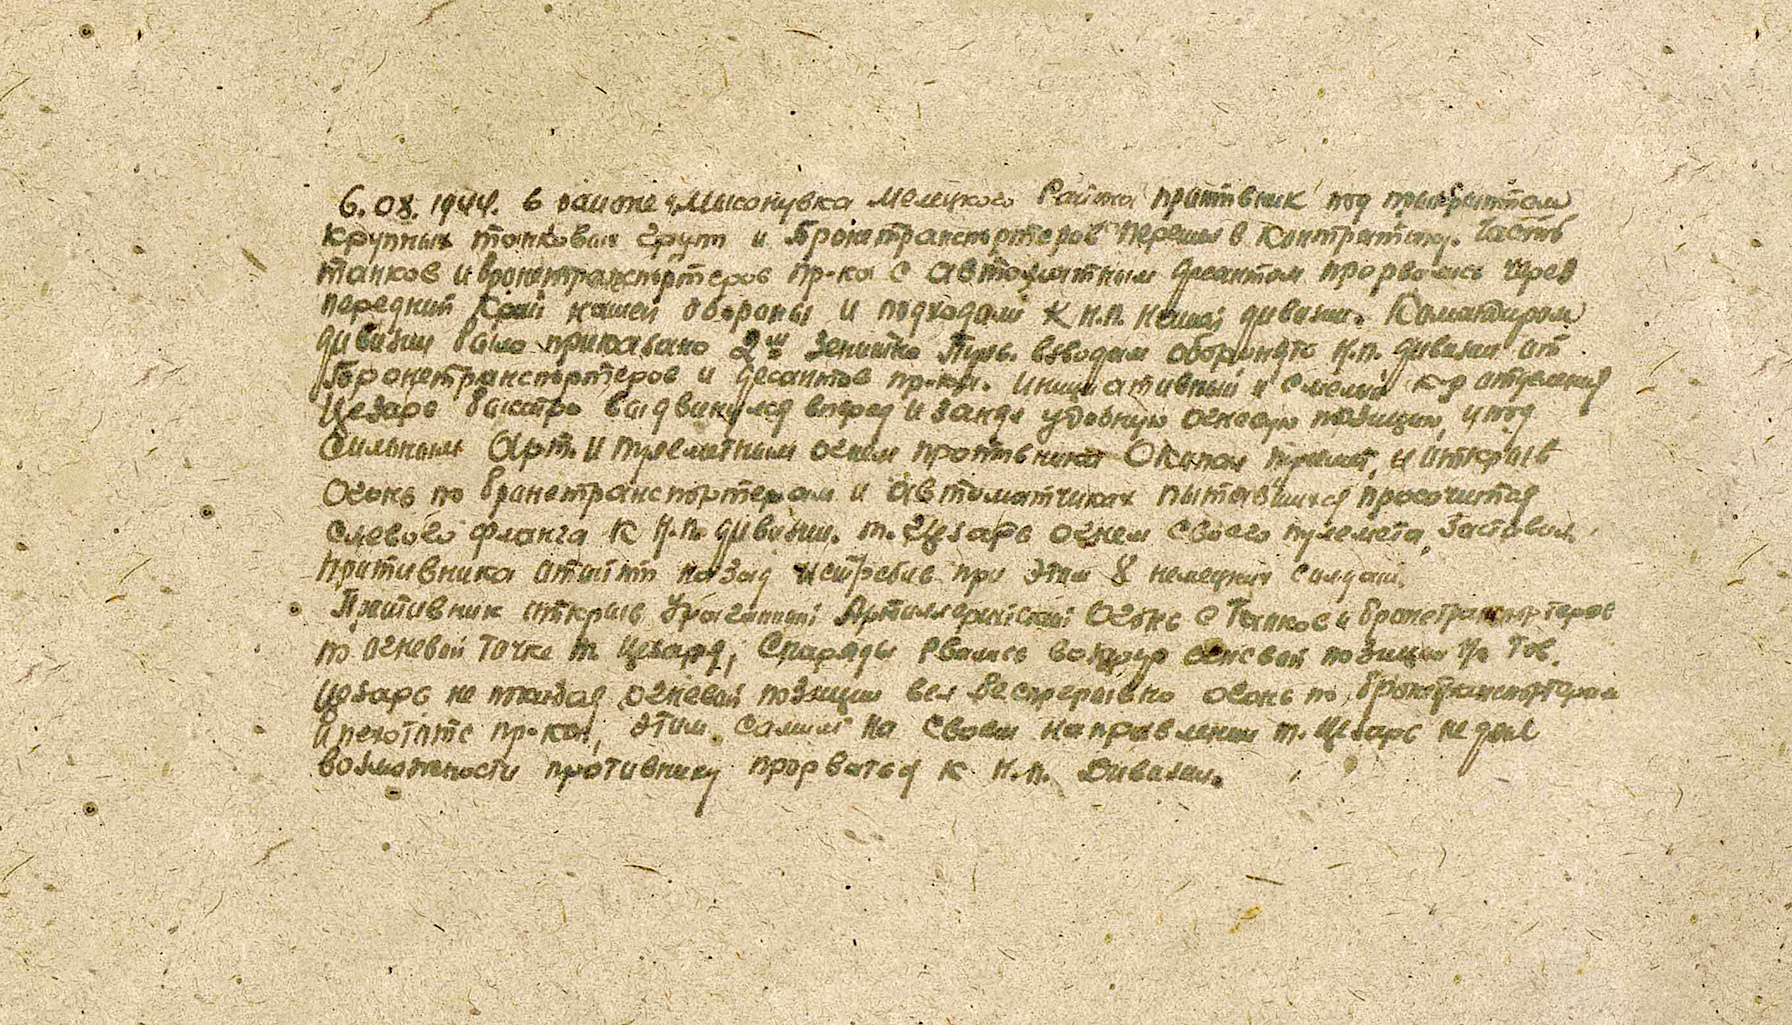 6.08.1944. в районе Мысонувка Мелецкого Района противник под прикрытием
крупных танковых груп и Бронетранспортеров перешел в контратаку. Часть
танков и бронетранспортеров пр-ка с автоматным десантом прорвались через
передний Край нашей обороны и подходили к н.п. нашей дивизии. Командиром
дивизии было приказано 2ум Зенитно Пуль. взводам оборонять н.п. дивизии от
Бронетранспортеров и десантов пр-ка. инициативный и смелый к-р отделения
Цезарь быстро выдвинулся вперед и занял удобную огневую позицию, и под
Сильным Арт. и пулеметным огнем противника Окопал пулемет, и открыв
Огонь по бранетранспортерам и автоматчикам пытавшихся просочится
слевого фланга к н.п. дивизии. т. Цезарь огнем своего пулемета Заставил
противника отойти назад истребив при этом 8 немецких солдат.
Противник открыв Ураганный Артиллерийский Огонь с Танков и бронетранспортеров
по огневой точке т. Цезаря, Снаряды рвались вокруг огневой позиции но Тов.
Цезарь не покидая огневой позиции вел беспрерывно огонь по бронетранспортерам
и пехоте пр-ка, этим самым на своем направлении т. Цезарь не дал
возможности противнику прорваться к н.п. Дивизии.